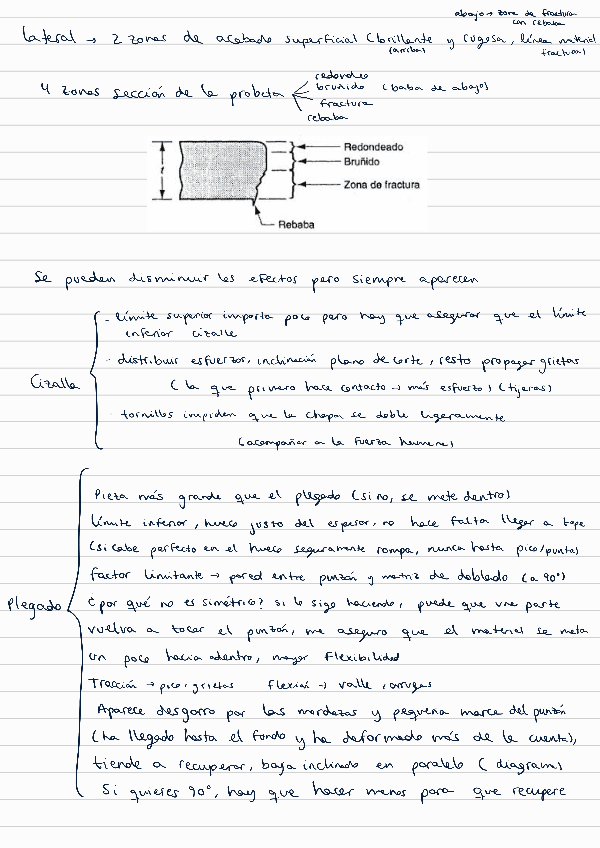 abajo → zona de fractura
con rebaba
Lateral → 2 zonas de acabado superficial (brillante y rugosa, línea material
(arriba) fractura)
4 zonas sección de la probeta
redondeo
bruñido (baba de abajo)
fractura
rebaba
t
Redondeado
Bruñido
Zona de fractura
Rebaba
Se pueden disminuir los efectos pero siempre aparecen
Cizalla
- límite superior importa poco pero hay que asegurar que el límite
inferior cizalle
- distribuir esfuerzos, inclinación plano de corte, resto propagar grietas
(la que primero hace contacto → más esfuerzo) (tijeras)
- tornillos impiden que la chapa se doble ligeramente
(acompañar a la fuerza humana)
Plegado
Pieza más grande que el plegado (si no, se mete dentro)
Límite inferior, hueco justo del espesor, no hace falta llegar a tope
(si cabe perfecto en el hueco seguramente rompa, nunca hasta pico/punta)
factor limitante → pared entre punzón y matriz de doblado (a 90°)
¿por qué no es simétrico? si lo sigo haciendo, puede que una parte
vuelva a tocar el punzón, me aseguro que el material se meta
un poco hacia adentro, mayor flexibilidad
Tracción → pico, grietas flexión → valle, arrugas
Aparece desgarro por las mordazas y pequeña marca del punzón
(ha llegado hasta el fondo y ha deformado más de la cuenta),
tiende a recuperar, baja inclinado en paralelo (diagrama)
Si quieres 90°, hay que hacer menos para que recupere